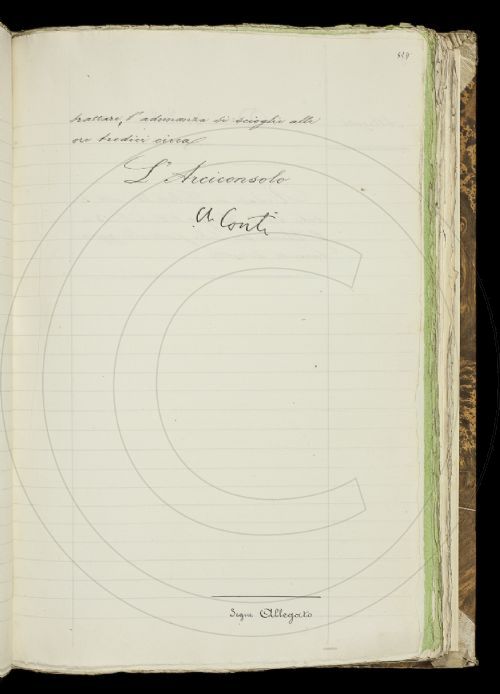 trattare, l'adunanza si scioglie alle
ore tredici circa
L'Arciconsolo
A Conti
Segue Allegato